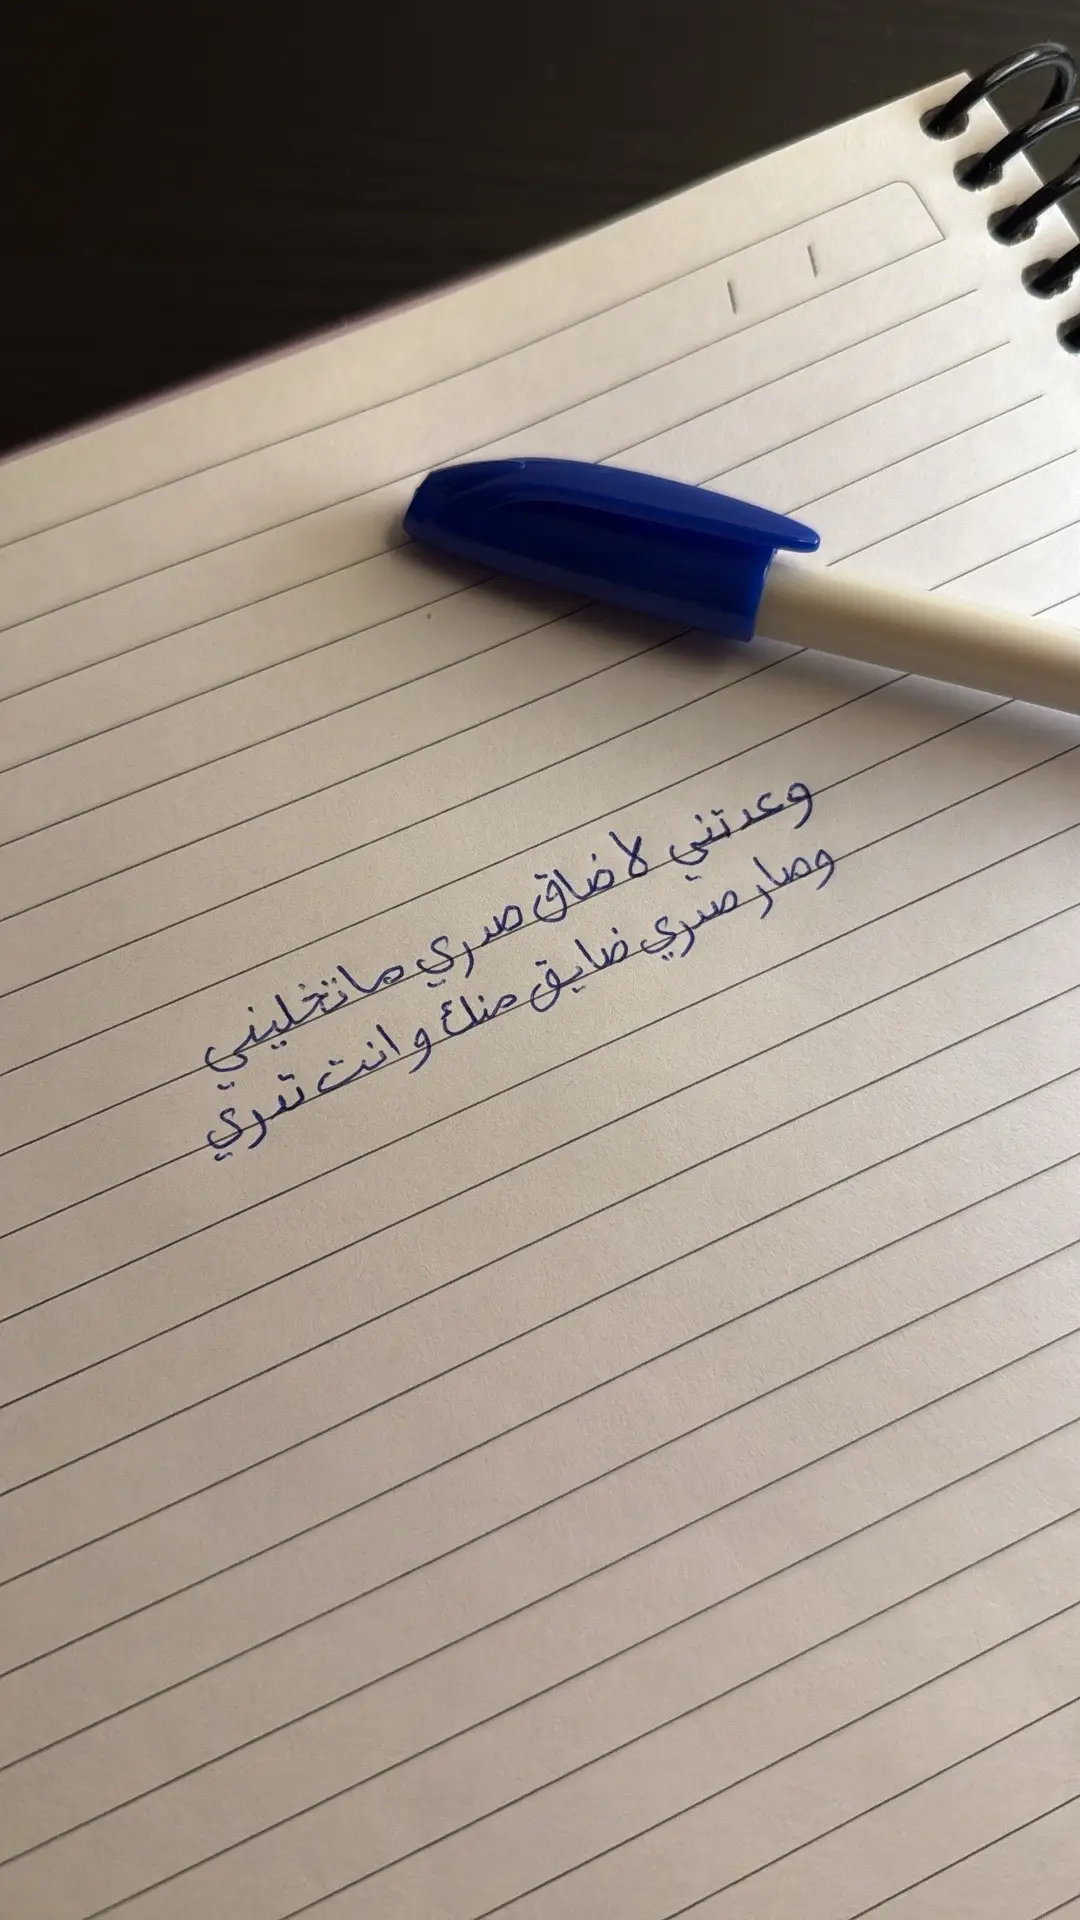 وعدتني لا ضاق صدري ما تخليني
وصار صدري ضايق منك وانت تدري